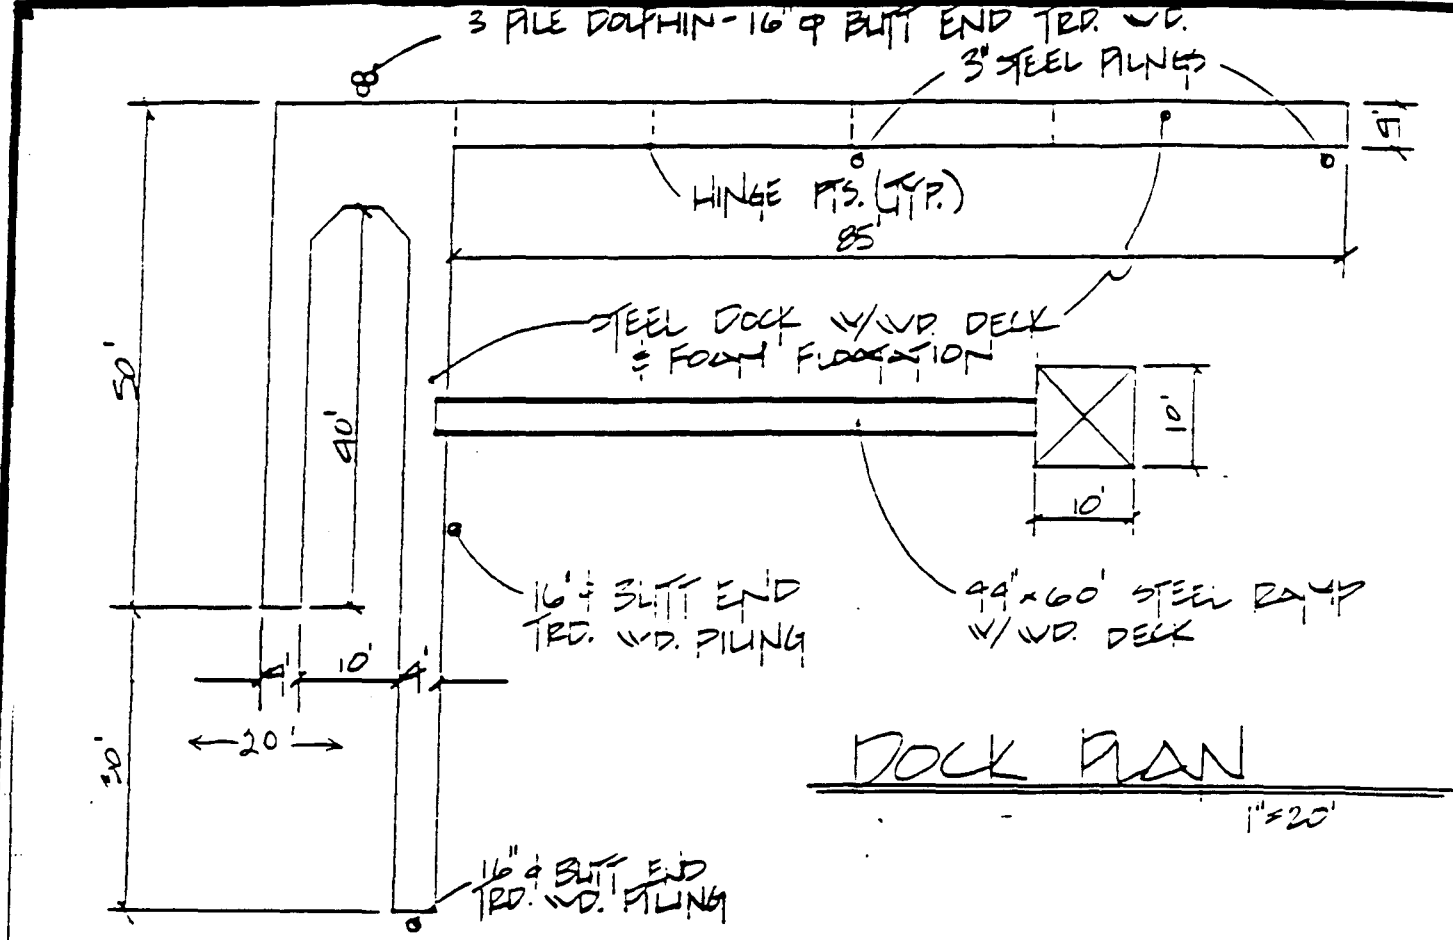 3 PILE DOLPHIN - 16" φ BUTT END TRD. WD.
3" STEEL PILINGS
4'
HINGE PTS. (TYP.)
85'
STEEL DOCK W/WD. DECK
& FOAM FLOATATION
50'
40'
10'
10'
16" φ BUTT END
TRD. WD. PILING
44" x 60' STEEL RAMP
W/WD. DECK
4'
10'
4'
20'
30'
DOCK PLAN
1"=20'
16" φ BUTT END
TRD. WD. PILING